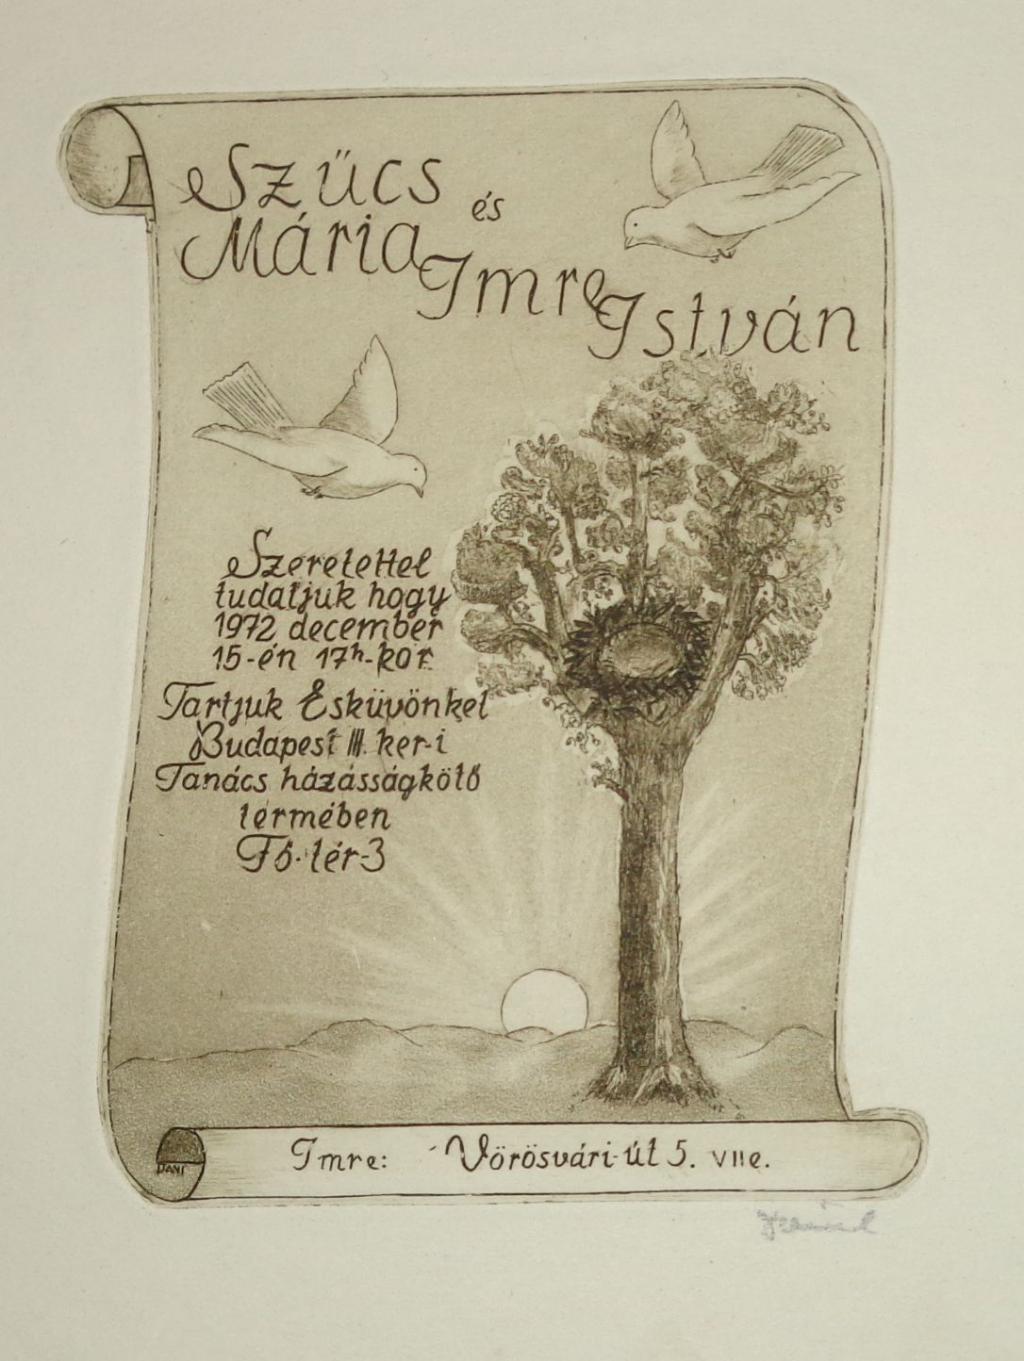 Szücs
Mária
és
Imre
István
Szeretettel
tudatjuk hogy
1972 december
15-én 17h-kor.
Tartjuk Esküvönket
Budapest III. ker-i
Tanács házásságkötő
termében
Fő-tér-3
Imre: Vörösvári-út 5. VII e.
DANI